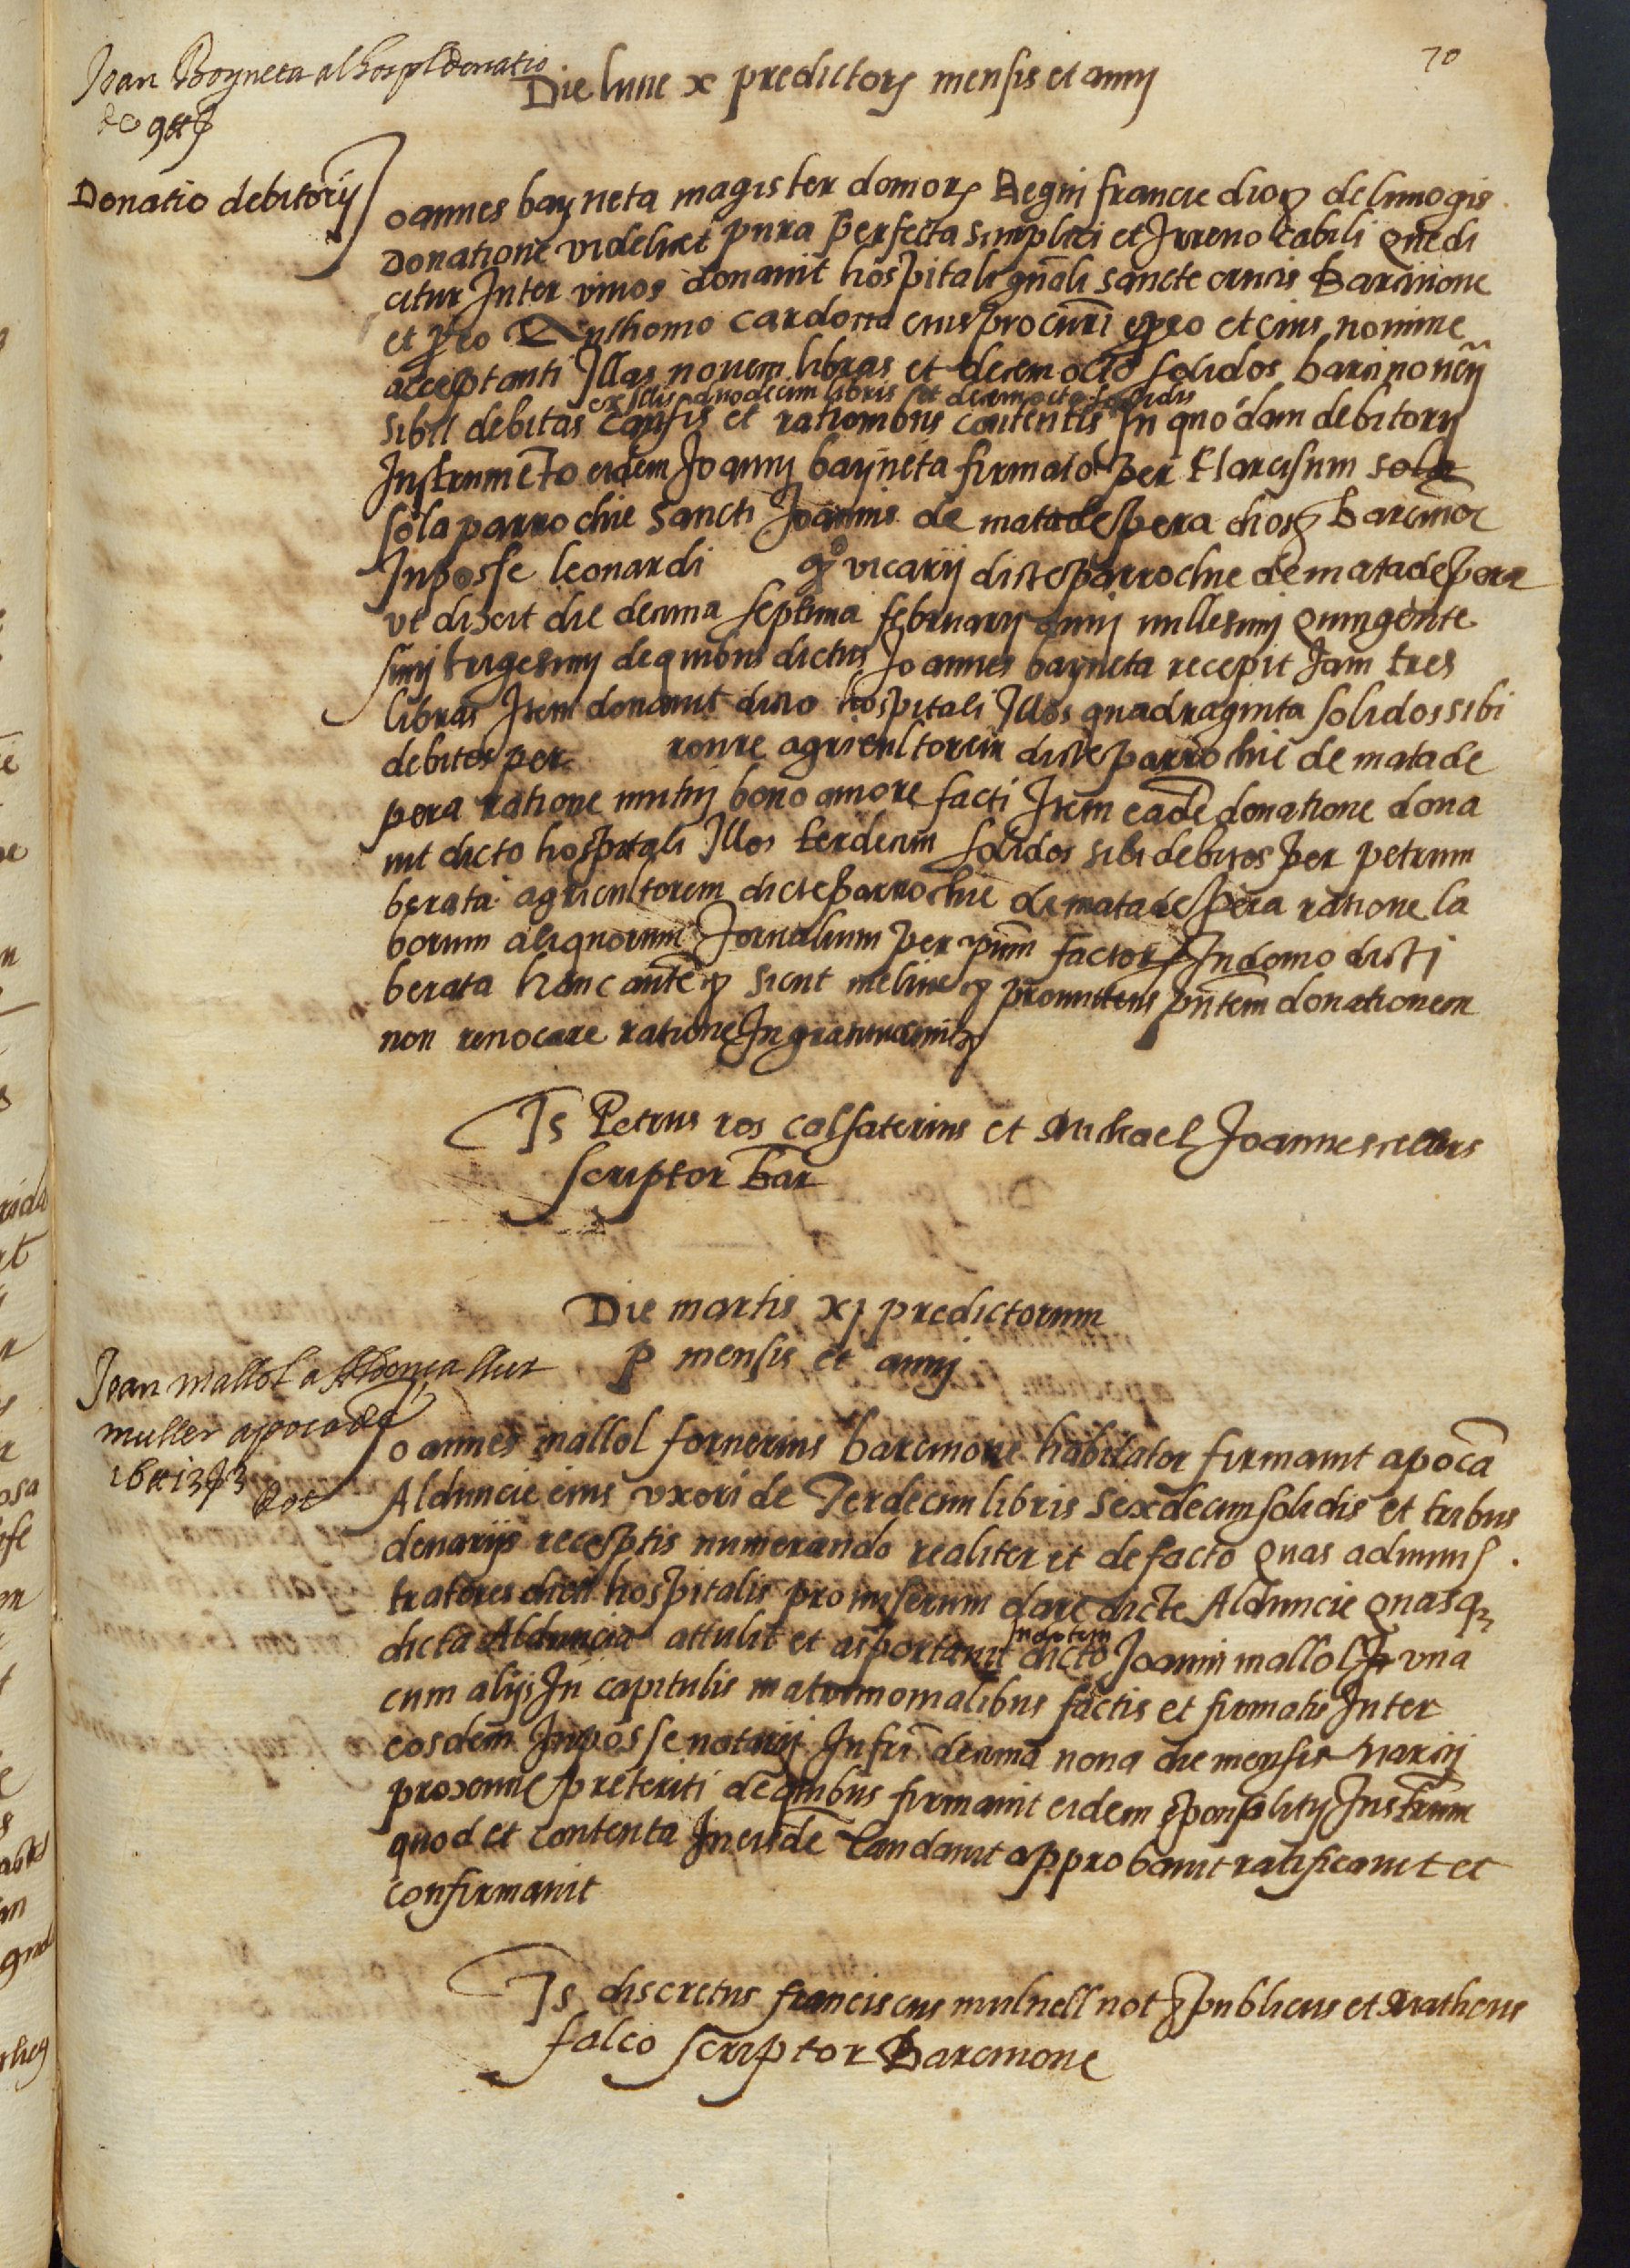 70
Joan Bayneta al hospl donatio
de 9 ₶
Die lune x predictorꝝ mensis et annj
Donatio debitorij
Joannes bayneta magister domorꝝ Regni francie dioꝝ de limogis
Donatione videlicet pura perfecta simplici et Irrenocabili que di
citur Inter viuos donauit hospitali gñali sancte crucis Barcinone
et pro eo Anthomo cardona eius procuri pro eo et eius nomine
acceptanti Illas nouem libras et decem octo solidos barcinoneñ
ex illis duodecim libris et decem octo solidis
sibi debitas causis et rationibus contentis In quodam debitorij
Instrumēto eidem Joannj bayneta firmato per Narcisum sola
sola parrochie sancti Joannis de matadepera dioꝝ Barcinoꝝ
In posse leonardi vicarij dicte parrochie de matadepera
vt dixit die decima septima februarij annj millesimj quingente
simj trigesimj de quibus dictus Joannes bayneta recepit Jam tres
libras Item donauit dicto hospitali Illos quadraginta solidos sibi
debitos per roure agricultorem dicte parrochie de matade
pera ratione mutuj bono amore facti Item eadē donatione dona
uit dicto hospitali Illos terdecim solidos sibi debitos per petrum
berata agricultorem dicte parrochie de matadepera ratione la
borum aliquorum Jornalium per ipūm factorꝝ In domo dicti
berata hanc autē sicut melius promittens pñtem donationem
non reuocare ratione Ingratitudinis
Ts Petrus ros calsaterius et Michael Joannes cellers
scriptor Bar
Die martis xj predictorum
p mensis et annj
Joan mallol a Aldonça llur
muller apoca de
16 ₶ 13 ẞ 3
dot
Joannes mallol fornerius barcinone habitator firmauit apocā
Alduncie eius vxori de Terdecim libris sexdecim solidis et tribus
denarijs receptis numerando realiter et de facto quas adminis
tratores dicti hospitalis promiserunt dare dicte Alduncie quasq̄
dicta Alduncia attulit et asportauit dicto Joanni mallol vna
In dotem
cum alijs In capitulis matrimonialibus factis et firmatis Inter
eosdem In posse notarij Infrī decima nona die mensis marcij
proxime preteriti de quibus firmauit eidem sponsalitij Instrūm
quod et contenta In eisdē laudauit approbauit ratificauit et
confirmauit
Ts discretus franciscus mulnell not publicus et Matheus
falco scriptor Barcinone